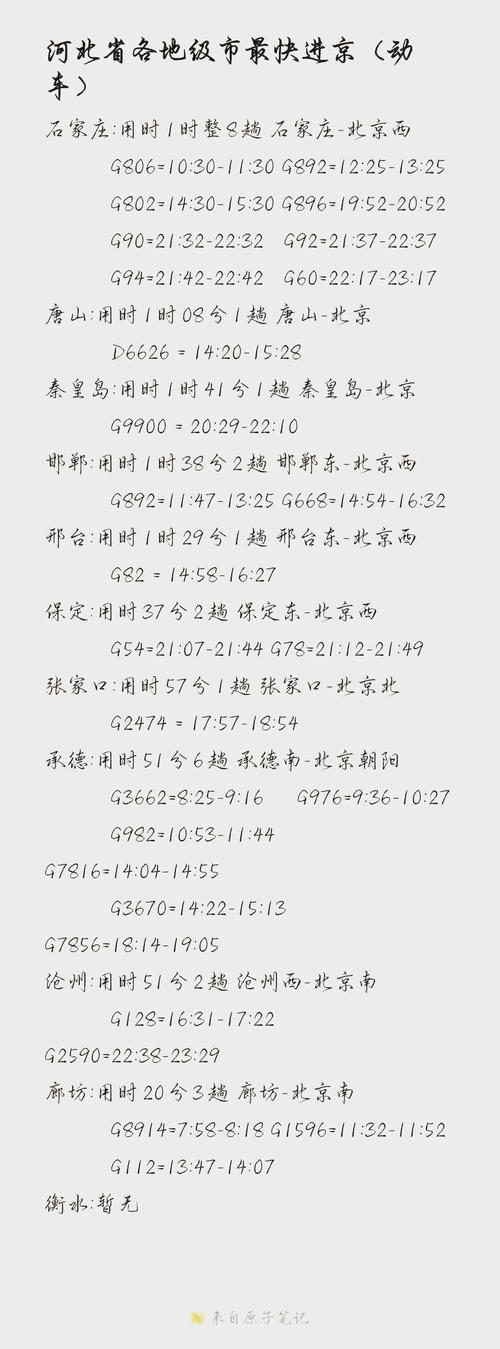 河北省各地级市最快进京（动
车）
石家庄:用时1时整8趟 石家庄-北京西
G806=10:30-11:30 G892=12:25-13:25
G802=14:30-15:30 G896=19:52-20:52
G90=21:32-22:32 G92=21:37-22:37
G94=21:42-22:42 G60=22:17-23:17
唐山:用时1时08分1趟 唐山-北京
D6626 = 14:20-15:28
秦皇岛:用时1时41分1趟 秦皇岛-北京
G9900 = 20:29-22:10
邯郸:用时1时38分2趟 邯郸东-北京西
G892=11:47-13:25 G668=14:54-16:32
邢台:用时1时29分1趟 邢台东-北京西
G82 = 14:58-16:27
保定:用时37分2趟 保定东-北京西
G54=21:07-21:44 G78=21:12-21:49
张家口:用时57分1趟 张家口-北京北
G2474 = 17:57-18:54
承德:用时51分6趟 承德南-北京朝阳
G3662=8:25-9:16 G976=9:36-10:27
G982=10:53-11:44
G7816=14:04-14:55
G3670=14:22-15:13
G7856=18:14-19:05
沧州:用时51分2趟 沧州西-北京南
G128=16:31-17:22
G2590=22:38-23:29
廊坊:用时20分3趟 廊坊-北京南
G8914=7:58-8:18 G1596=11:32-11:52
G112=13:47-14:07
衡水:暂无
来自原子笔记